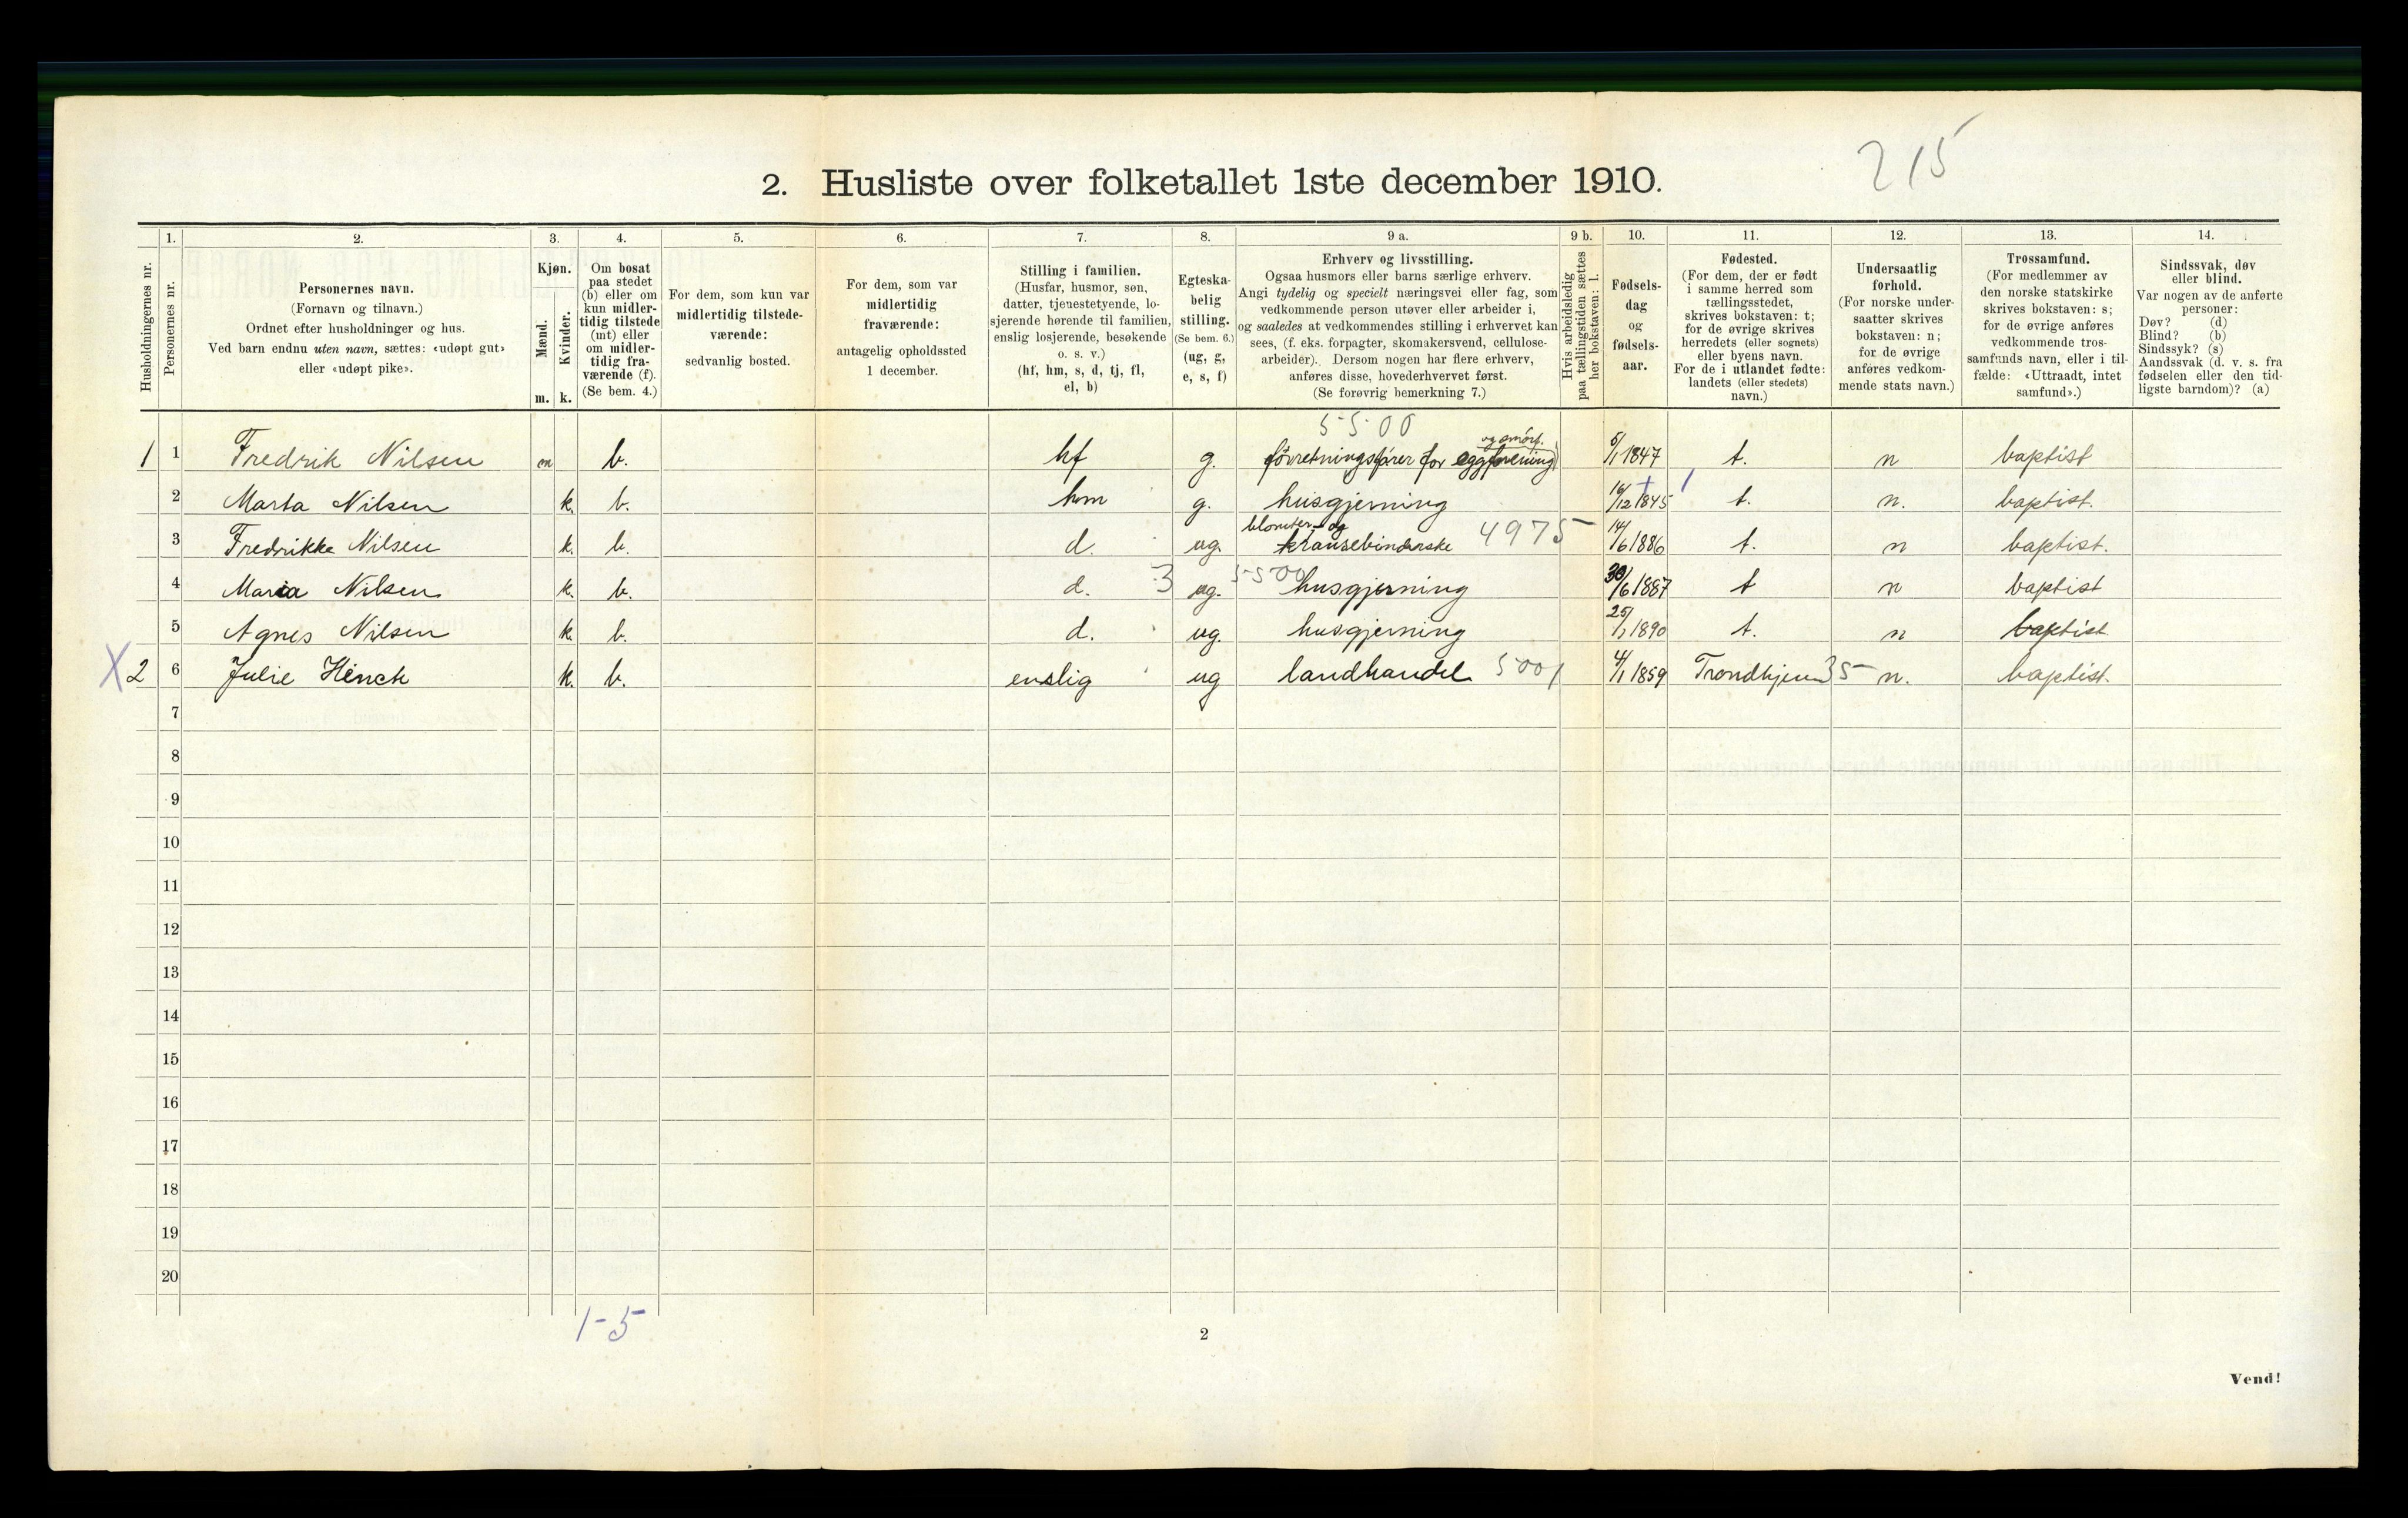 215
2. Husliste over folketallet 1ste december 1910.
Husholdningernes nr.
1.
Personernes nr.
2.
Personernes navn.
(Fornavn og tilnavn.)
Ordnet efter husholdninger og hus.
Ved barn endnu uten navn, sættes: «udøpt gut»
eller «udøpt pike».
3.
Kjøn.
Mænd.
m.
Kvinder.
k.
4.
Om bosat
paa stedet
(b) eller om
kun midler-
tidig tilstede
(mt) eller
om midler-
tidig fra-
værende (f).
(Se bem. 4.)
5.
For dem, som kun var
midlertidig tilstede-
værende:
sedvanlig bosted.
6.
For dem, som var
midlertidig
fraværende:
antagelig opholdssted
1 december.
7.
Stilling i familien.
(Husfar, husmor, søn,
datter, tjenestetyende, lo-
sjerende hørende til familien,
enslig losjerende, besøkende
o. s. v.)
(hf, hm, s, d, tj, fl,
el, b)
8.
Egteska-
belig
stilling.
(Se bem. 6.)
(ug, g,
e, s, f)
9 a.
Erhverv og livsstilling.
Ogsaa husmors eller barns særlige erhverv.
Angi tydelig og specielt næringsvei eller fag, som
vedkommende person utøver eller arbeider i,
og saaledes at vedkommendes stilling i erhvervet kan
sees, (f. eks. forpagter, skomakersvend, cellulose-
arbeider). Dersom nogen har flere erhverv,
anføres disse, hovederhvervet først.
(Se forøvrig bemerkning 7.)
9 b.
Hvis arbeidsledig
paa tællingstiden sættes
her bokstaven: l.
10.
Fødsels-
dag
og
fødsels-
aar.
11.
Fødested.
(For dem, der er født
i samme herred som
tællingsstedet,
skrives bokstaven: t;
for de øvrige skrives
herredets (eller sognets)
eller byens navn.
For de i utlandet fødte:
landets (eller stedets)
navn.)
12.
Undersaatlig
forhold.
(For norske under-
saatter skrives
bokstaven: n;
for de øvrige
anføres vedkom-
mende stats navn.)
13.
Trossamfund.
(For medlemmer av
den norske statskirke
skrives bokstaven: s;
for de øvrige anføres
vedkommende tros-
samfunds navn, eller i til-
fælde: «Uttraadt, intet
samfund».)
14.
Sindssvak, døv
eller blind.
Var nogen av de anførte
personer:
Døv? (d)
Blind? (b)
Sindssyk? (s)
Aandssvak (d. v. s. fra
fødselen eller den tid-
ligste barndom)? (a)
5500
og smørf.
1 1 Fredrik Nilsen m b. hf g. forretningsfører for eggforening 5/1 1847 t. n baptist
2 Marta Nilsen k. b. hm g. husgjerning 16/12 1845 t. n. baptist.
blomster- og
3 Fredrikke Nilsen k. b. d. ug. kransebinderske 4975 14/6 1886 t. n baptist.
4 Maria Nilsen k. b. d. 3 ug. 5500 husgjerning 30/6 1887 t n baptist
5 Agnes Nilsen k. b. d. ug. husgjerning 25/1 1890 t. n baptist
X 2 6 Julie Hinck k. b. enslig ug landhandel 5001 4/1 1859 Trondhjem 35 n. baptist.
7
8
9
10
11
12
13
14
15
16
17
18
19
20
1-5
2
Vend!